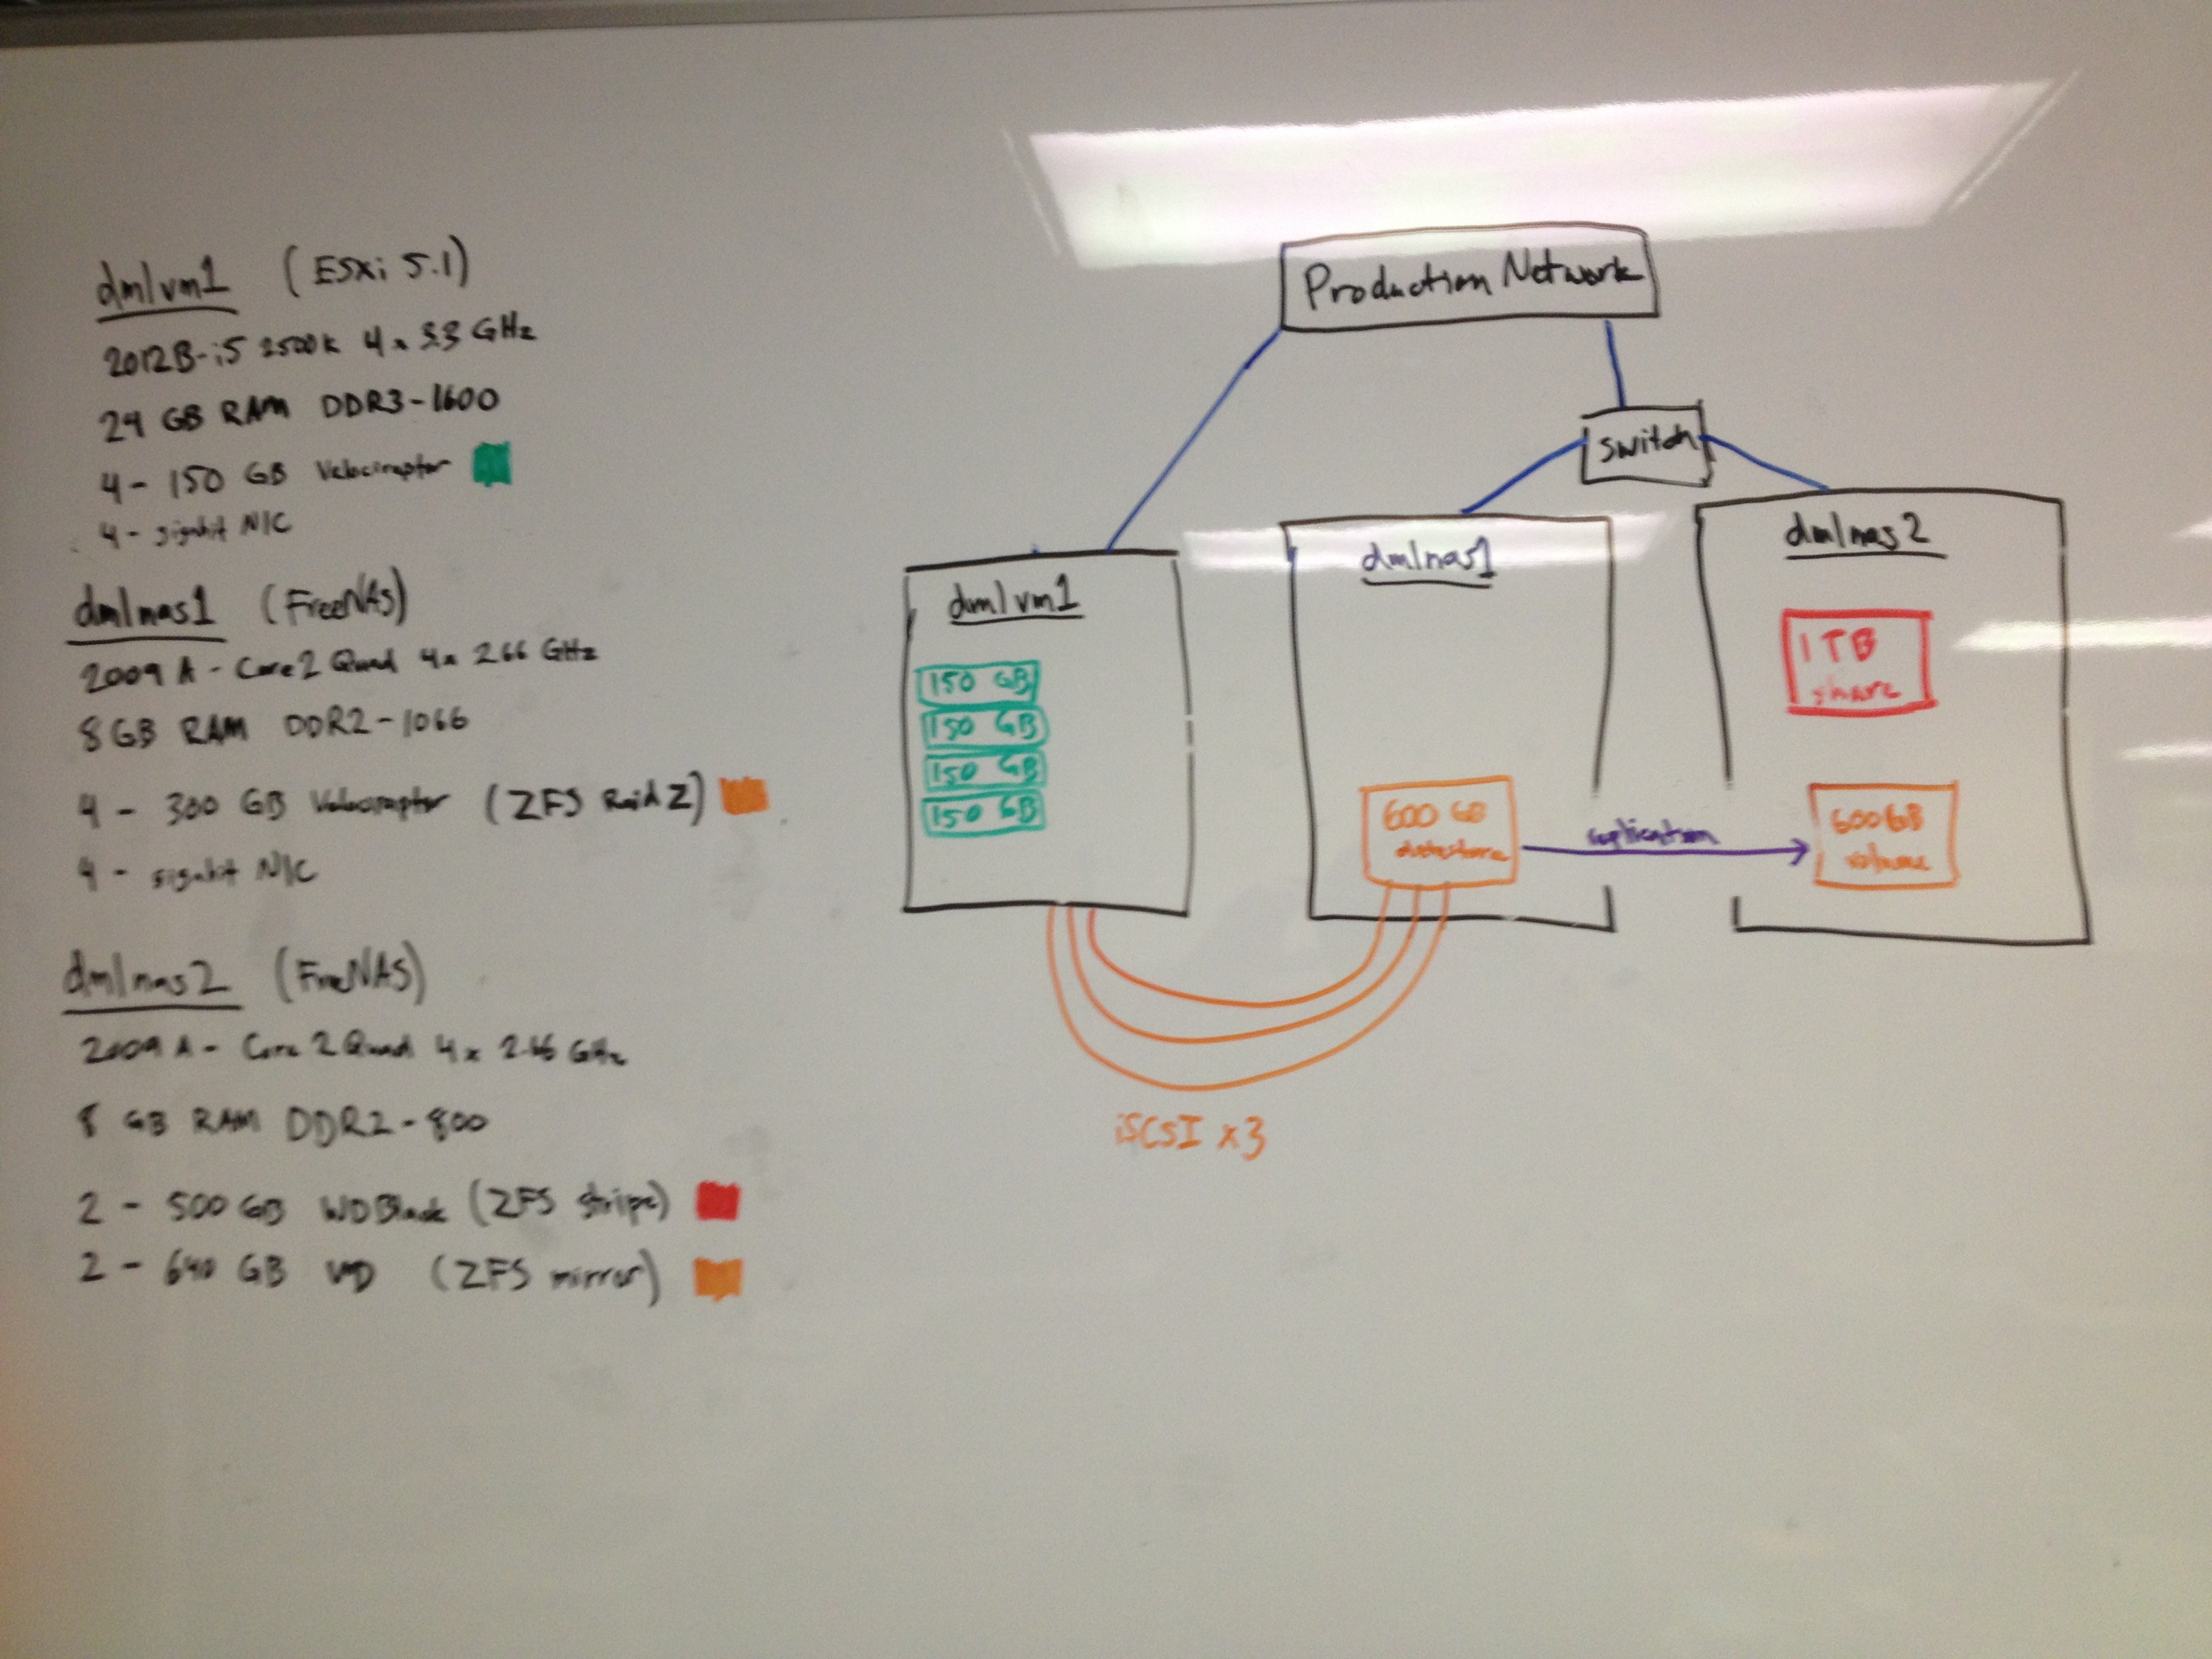 dmlvm1 (ESXi 5.1)
2012B-i5 2500k 4x 3.3 GHz
24 GB RAM DDR3-1600
4 - 150 GB Velociraptor
4 - gigabit NIC
dmlnas1 (FreeNAS)
2009 A - Core2 Quad 4x 2.66 GHz
8 GB RAM DDR2-1066
4 - 300 GB Velociraptor (ZFS Raid Z)
4 - gigabit NIC
dmlnas2 (FreeNAS)
2009 A - Core 2 Quad 4x 2.66 GHz
8 GB RAM DDR2-800
2 - 500 GB WD Black (ZFS stripe)
2 - 640 GB WD (ZFS mirror)
Production Network
switch
dmlvm1
150 GB
150 GB
150 GB
150 GB
dmlnas1
600 GB
datastore
replication
dmlnas2
1 TB
share
600 GB
volume
iSCSI x3